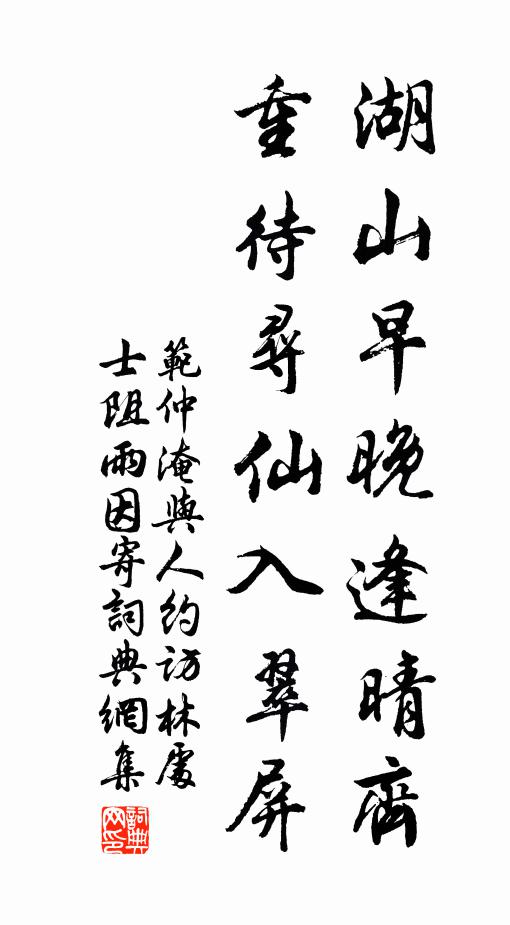 湖山早晚逢晴齊
重待尋仙入翠屏
範仲淹與人約訪林處
士阻雨因寄詞典網集
詞典
网印